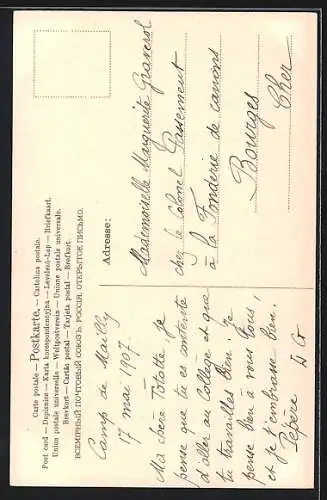 Carte postale. — Postkarte. — Cartolina postale.
Post card — Dopisnice — Karta korespondencyjna — Levelező-Lap — Briefkaart.
Union postale universelle. — Weltpostverein — Unione postale universale.
Brevkort — Cartão postal — Tarjeta postal — Brefkort.
ВСЕМІРНЫЙ ПОЧТОВЫЙ СОЮЗЪ. РОССІЯ, ОТКРЫТОЕ ПИСЬМО.
Camp de Mailly
17 mai 1907.
Ma chère Totote, je
pense que tu es contente
d'aller au Collège et que
tu travailles bien. Je
pense bien à vous tous,
et je t'embrasse bien.
Pépère
Adresse:
Mademoiselle Marguerite Graverol
chez le Colonel Passement
à la Fonderie de canons
Bourges
Cher